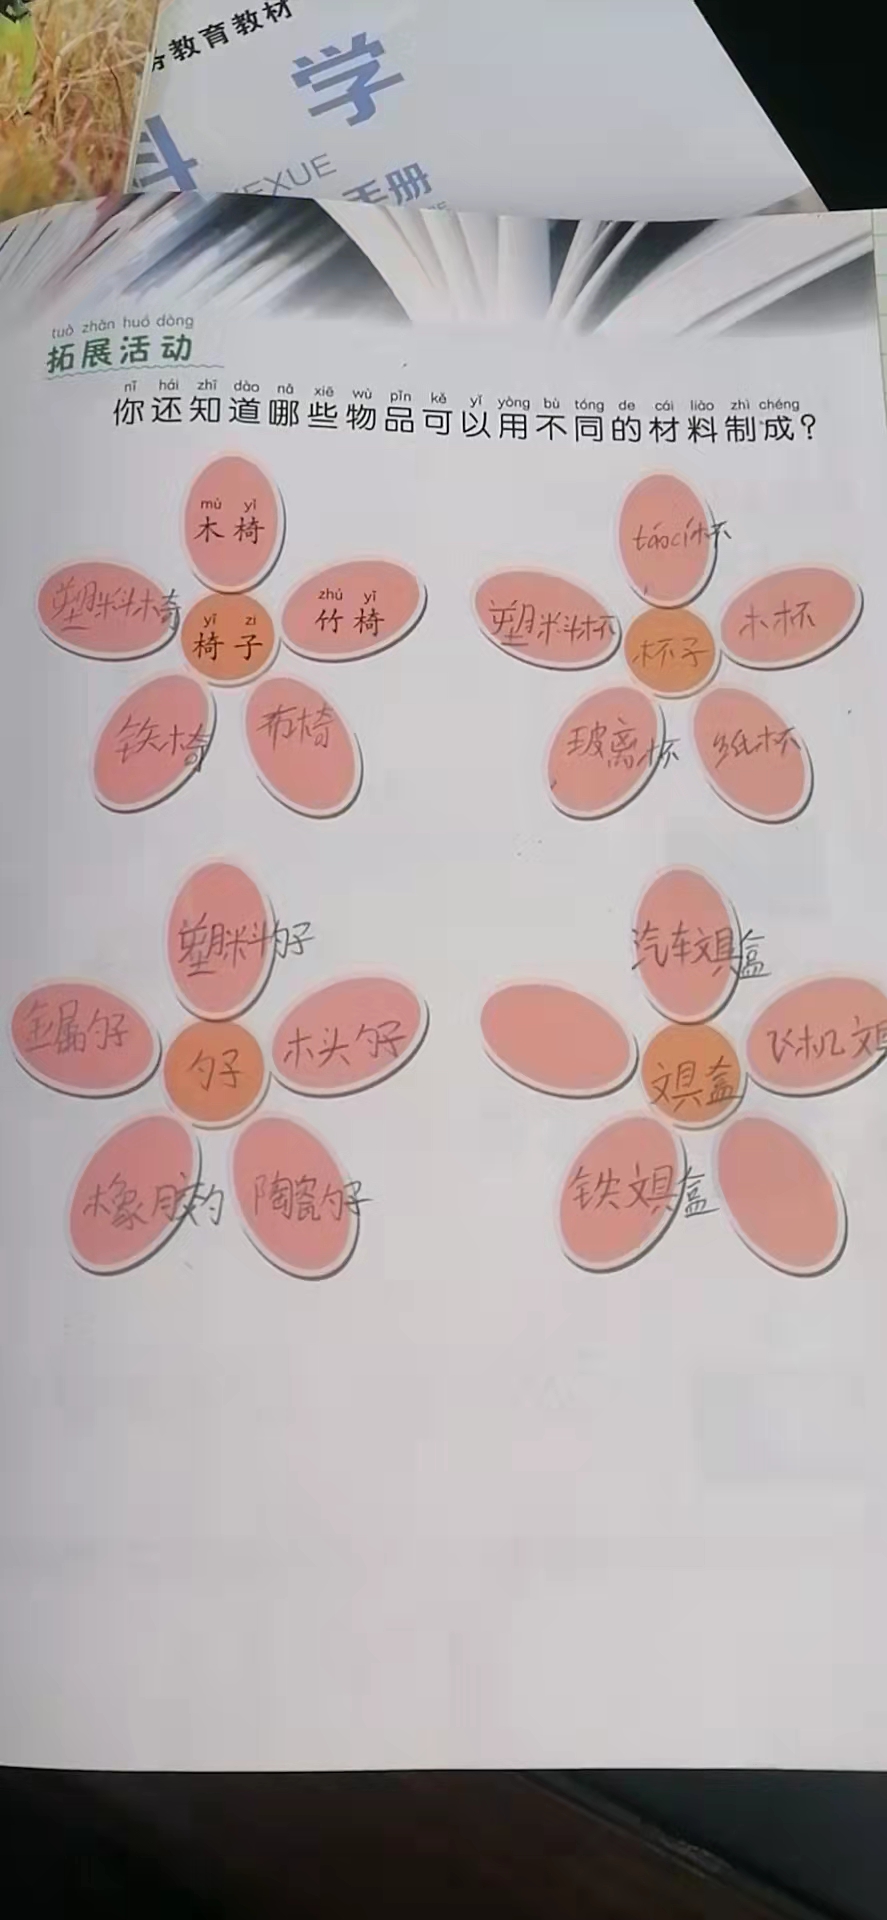 教育教材
学
KEXUE
手册
tuò zhǎn huó dòng
拓展活动
nǐ hái zhī dào nǎ xiē wù pǐn kě yǐ yòng bù tóng de cái liào zhì chéng
你还知道哪些物品可以用不同的材料制成?
mù yǐ
木椅
塑料椅
zhú yǐ
竹椅
yǐ zi
椅子
铁椅
布椅
táocí杯
塑料杯
木杯
杯子
玻离杯
纸杯
塑料勺子
金属勺子
木头勺子
勺子
橡胶勺
陶瓷勺子
汽车文具盒
飞机文具
文具盒
铁文具盒